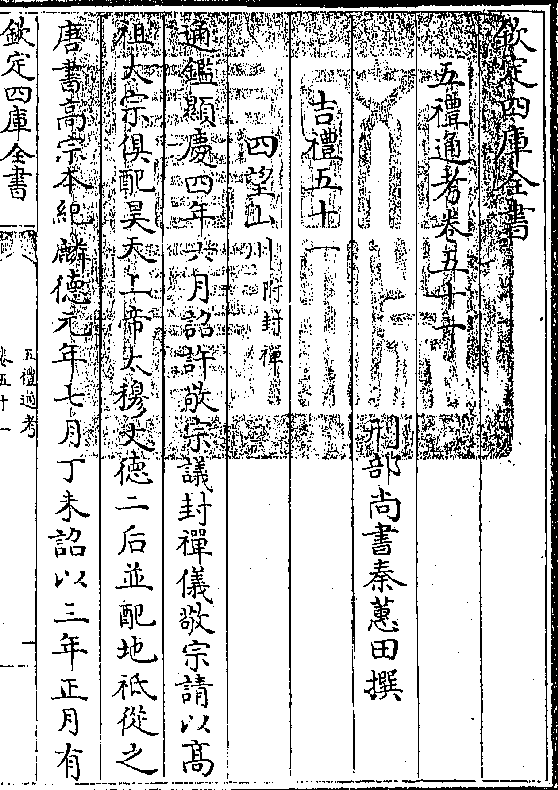 欽定四庫全書
五禮通考卷五十一
刑部尚書秦蕙田撰
吉禮五十一
四望山川附封禪
通鑑顯慶四年六月詔許敬宗議封禪儀敬宗請以髙
祖太宗俱配昊天上帝太穆文德二后並配地祗從之
唐書高宗本紀麟德元年七月丁未詔以三年正月有
欽定四庫全書
五禮通考
卷五十一
一